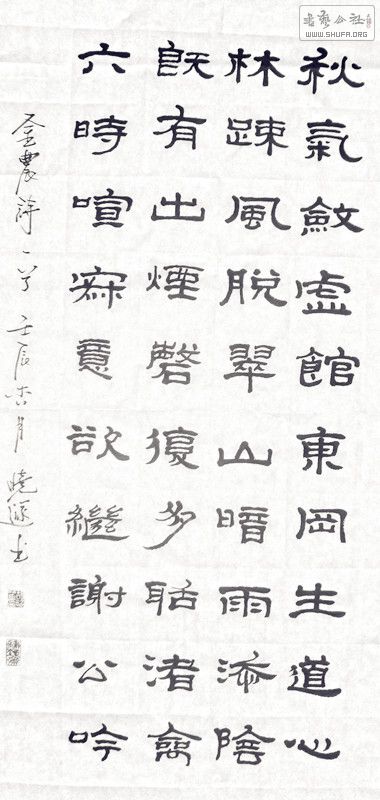 秋氣斂虛館東岡生道心
林踈風脫翠山暗雨添陰
既有出煙磬復多聒渚禽
六時喧寂意欲繼謝公吟
金農詩一首 壬辰杏月
書藝公社
WWW.SHUFA.ORG